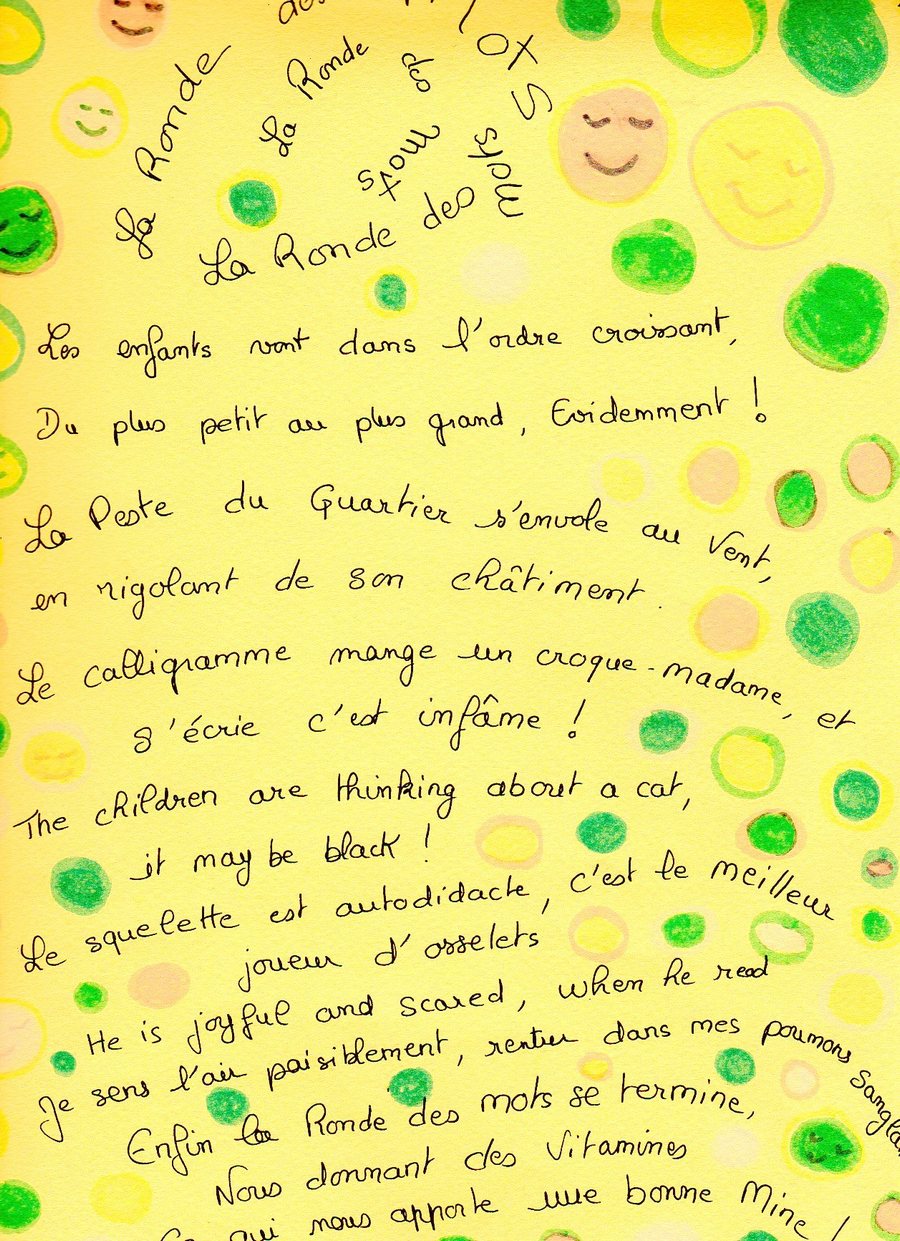 La Ronde des
MOTS
La Ronde
des
mots
La Ronde des mots
Les enfants vont dans l'ordre croissant,
Du plus petit au plus grand, Evidemment !
La Peste du Quartier s'envole au vent,
en rigolant de son châtiment.
Le calligramme mange un croque-madame, et
s'écrie c'est infâme !
The children are thinking about a cat,
it may be black !
Le squelette est autodidacte, c'est le meilleur
joueur d'osselets
He is joyful and scared, when he read
Je sens l'air paisiblement, rentrer dans mes poumons
Enfin la Ronde des mots se termine,
Nous donnant des Vitamines
qui nous apporte une bonne Mine !